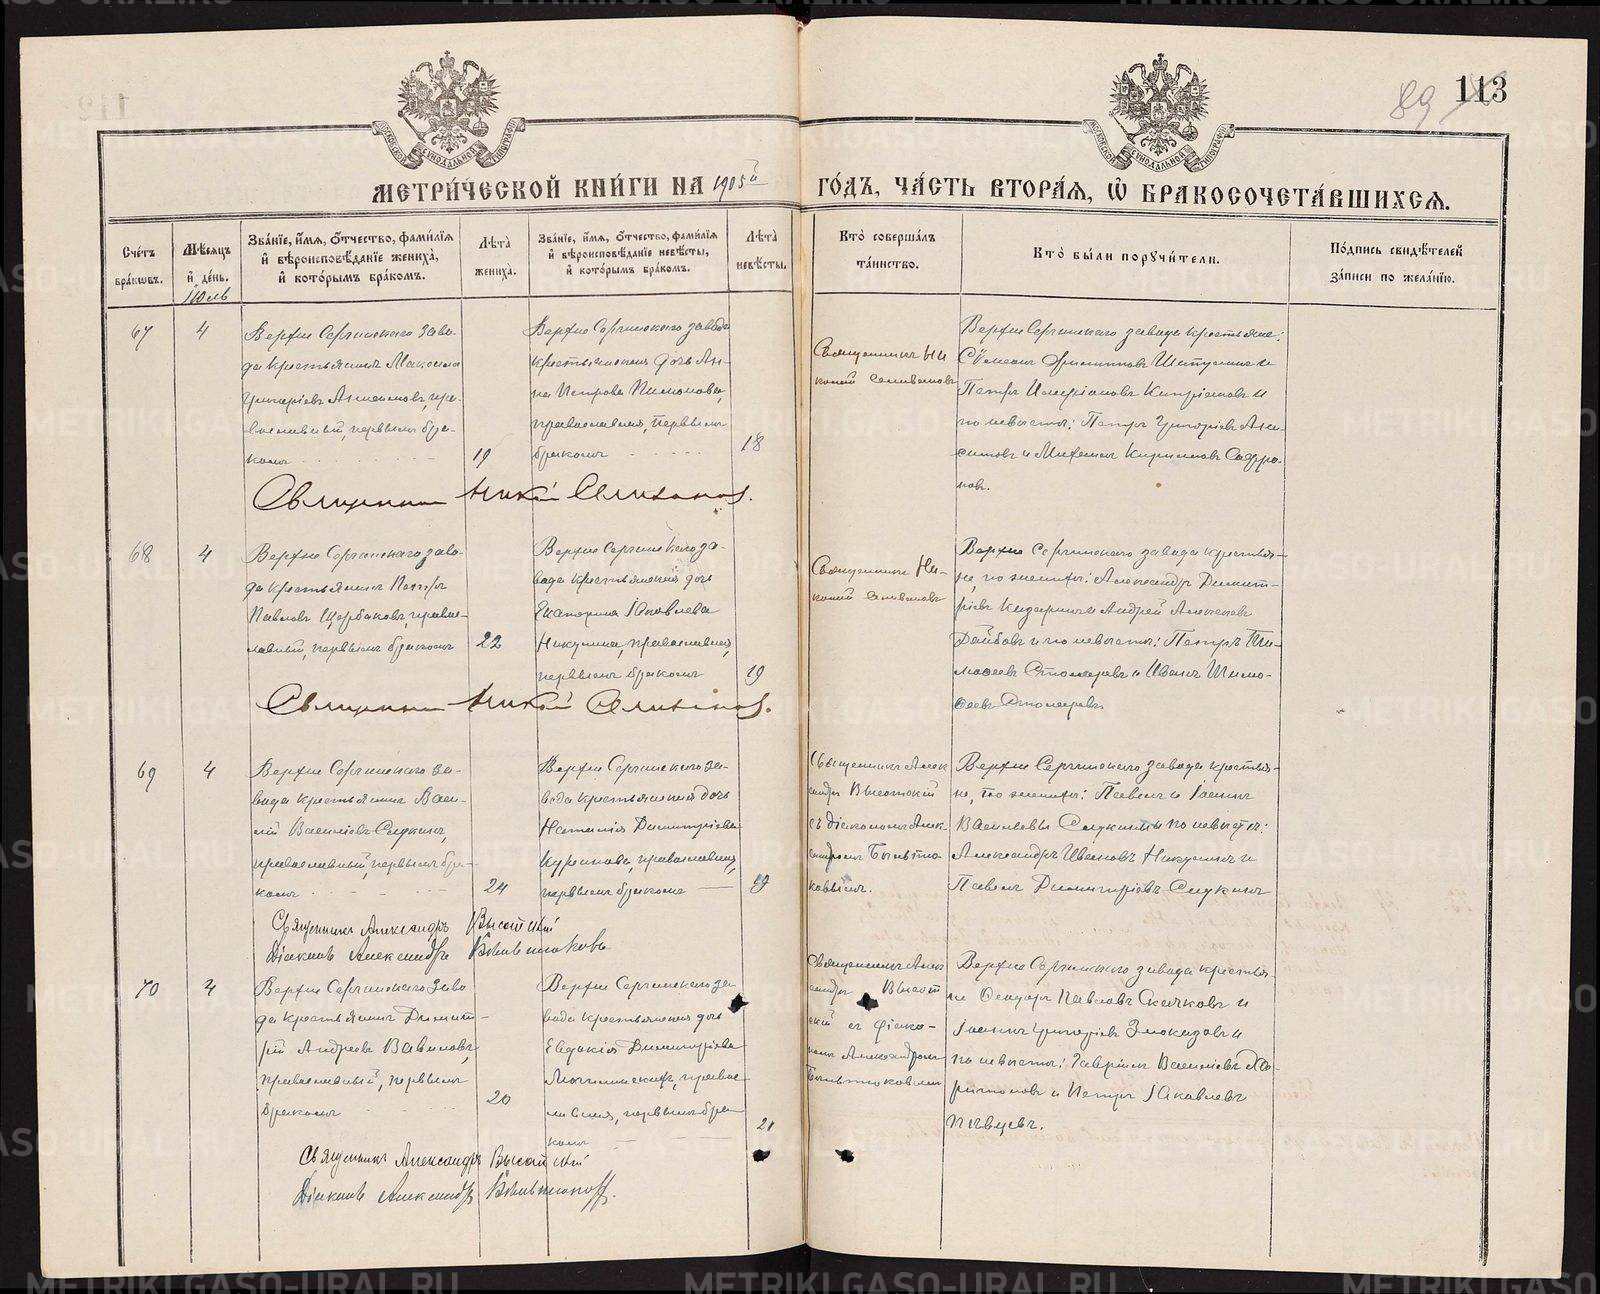 113
89
МЕТРИ́ЧЕСКОЙ КНИ́ГИ НА 1905й ГО́ДЪ, ЧА́СТЬ ВТОРА́Я, Ѡ҆ БРАКОСОЧЕТА́ВШИХСЯ.
Сче́тъ бра́кѡвъ.
Мѣ́сяцъ и҆ де́нь.
Зва́нїе, и҆́мя, ѻ҆́тчество, фами́лїя
и҆ вѣроисповѣ́данїе жениха̀,
и҆ кото́рымъ бра́комъ.
Лѣта̀ жениха̀.
Зва́нїе, и҆́мя, ѻ҆́тчество, фами́лїя
и҆ вѣроисповѣ́данїе невѣ́сты,
и҆ кото́рымъ бра́комъ.
Лѣта̀ невѣ́сты.
Кто̀ соверша́лъ та́инство.
Кто̀ бы́ли порꙋчи́тели.
По́дпись свидѣ́телей
за́писи по жела́нїю.
Июль
67
4
Верхне Сергинскаго заво-
да крестьянинъ Максимъ
Григоріевъ Анисимовъ, пра-
вославный, первымъ бра-
комъ
19
Верхне Сергинскаго завода
крестьянская дочь Ан-
на Петрова Пимонова,
православная, первымъ
бракомъ
18
Священникъ Ни
коній Селивановъ
Верхне Сергинскаго завода крестьяне:
Петръ
и
по невѣстѣ: Петръ Григоріевъ Ани-
симовъ и Кирилловъ Сафро-
новъ.
Священникъ Никоній Селивановъ.
68
4
Верхне Сергинскаго заво-
да крестьянинъ Петръ
Павловъ Щербаковъ, право-
славный, первымъ бракомъ
22
Верхне Сергинскаго за-
вода крестьянская дочь
Екатерина Іаковлева
Никулина, православная,
первымъ бракомъ
19
Священникъ Ни-
коній Селивановъ
Верхне Сергинскаго завода крестья-
не, по женихѣ: Александръ Димит-
ріевъ и Андрей Алексѣевъ
и по невѣстѣ: Петръ Ти-
моѳеевъ и Иванъ Тимо-
ѳеевъ
Священникъ Никоній Селивановъ.
69
4
Верхне Сергинскаго за-
вода крестьянинъ Васи-
лій Васильевъ Слукинъ,
православный, первымъ бра-
комъ
24
Верхне Сергинскаго за-
вода крестьянская дочь
Наталія Димитріева
православная,
первымъ бракомъ
19
Священникъ Алек
сандръ Высотскій
съ діакономъ Алек-
сандромъ Бѣльтю
ковымъ.
Верхне Сергинскаго завода крестья-
не, по женихѣ: Павелъ и Іоаннъ
Васильевы Слукины по невѣстѣ:
Александръ Ивановъ Никулинъ и
Павелъ Димитріевъ Слукинъ
Священникъ Александръ Высотскій
Діаконъ Александръ Бѣльтюковъ
70
4
Верхне Сергинскаго заво
да крестьянинъ Димит-
рій Андреевъ Вавиловъ,
православный, первымъ
бракомъ
20
Верхне Сергинскаго за-
вода крестьянская дочь
Евдокія Димитріева
православ-
ная, первымъ бра-
комъ
21
Священникъ Алек
сандръ Высот
скій съ діако-
номъ Александромъ
Бѣльтюковымъ
Верхне Сергинскаго завода крестья-
не Ѳеодоръ Павловъ Скачковъ и
Іоаннъ Григоріевъ Злоказовъ и
по невѣстѣ: Гавріилъ Васильевъ Ха-
ритоновъ и Петръ Іаковлевъ
Пѣвцевъ.
Священникъ Александръ Высотскій
Діаконъ Александръ Бѣльтюковъ.
METRIKI.GASO-URAL.RU